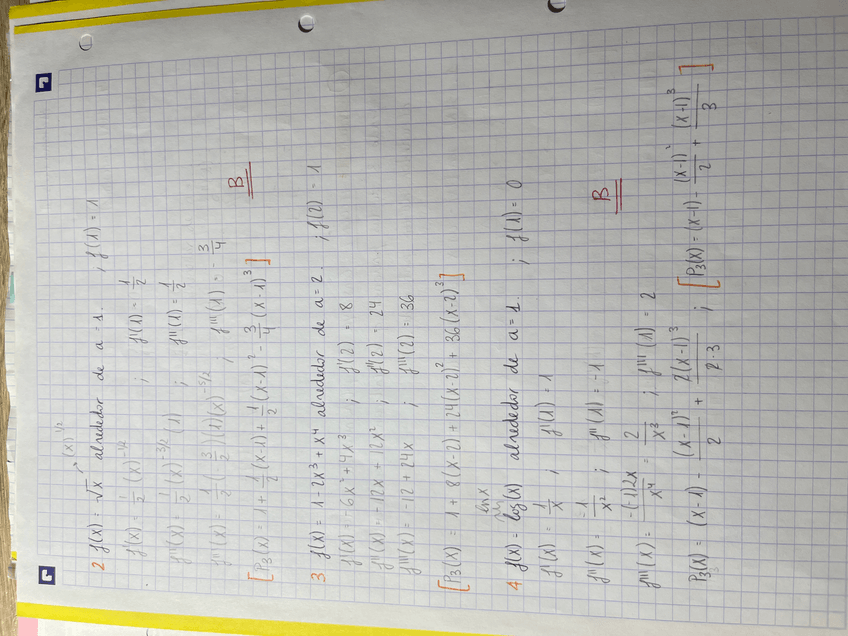 2 f(x) = √x alrededor de a = 1. ; f(1) = 1
(x)^1/2
f'(x) = 1/2 (x)^-1/2 ; f'(1) = 1/2
f''(x) = 1/2 (x)^-3/2 (1) ; f''(1) = 1/2
f'''(x) = 1/2 (-3/2)(1)(x)^-5/2 ; f'''(1) = -3/4
B
[P₃(x) = 1 + 1/2 (x-1) + 1/2 (x-1)² - 3/4 (x-1)³]
3 f(x) = 1 - 2x³ + x⁴ alrededor de a = 2. ; f(2) = 1
f'(x) = -6x² + 4x³ ; f'(2) = 8
f''(x) = -12x + 12x² ; f''(2) = 24
f'''(x) = -12 + 24x ; f'''(2) = 36
[P₃(x) = 1 + 8(x-2) + 24(x-2)² + 36(x-2)³]
ln x
4 f(x) = log(x) alrededor de a = 1. ; f(1) = 0
f'(x) = 1/x ; f'(1) = 1
f''(x) = -1/x² ; f''(1) = -1
B
f'''(x) = -(-1)2x/x⁴ = 2/x³ ; f'''(1) = 2
P₃(x) = (x-1) - (x-1)²/2 + 2(x-1)³/2·3 ; [P₃(x) = (x-1) - (x-1)²/2 + (x-1)³/3]